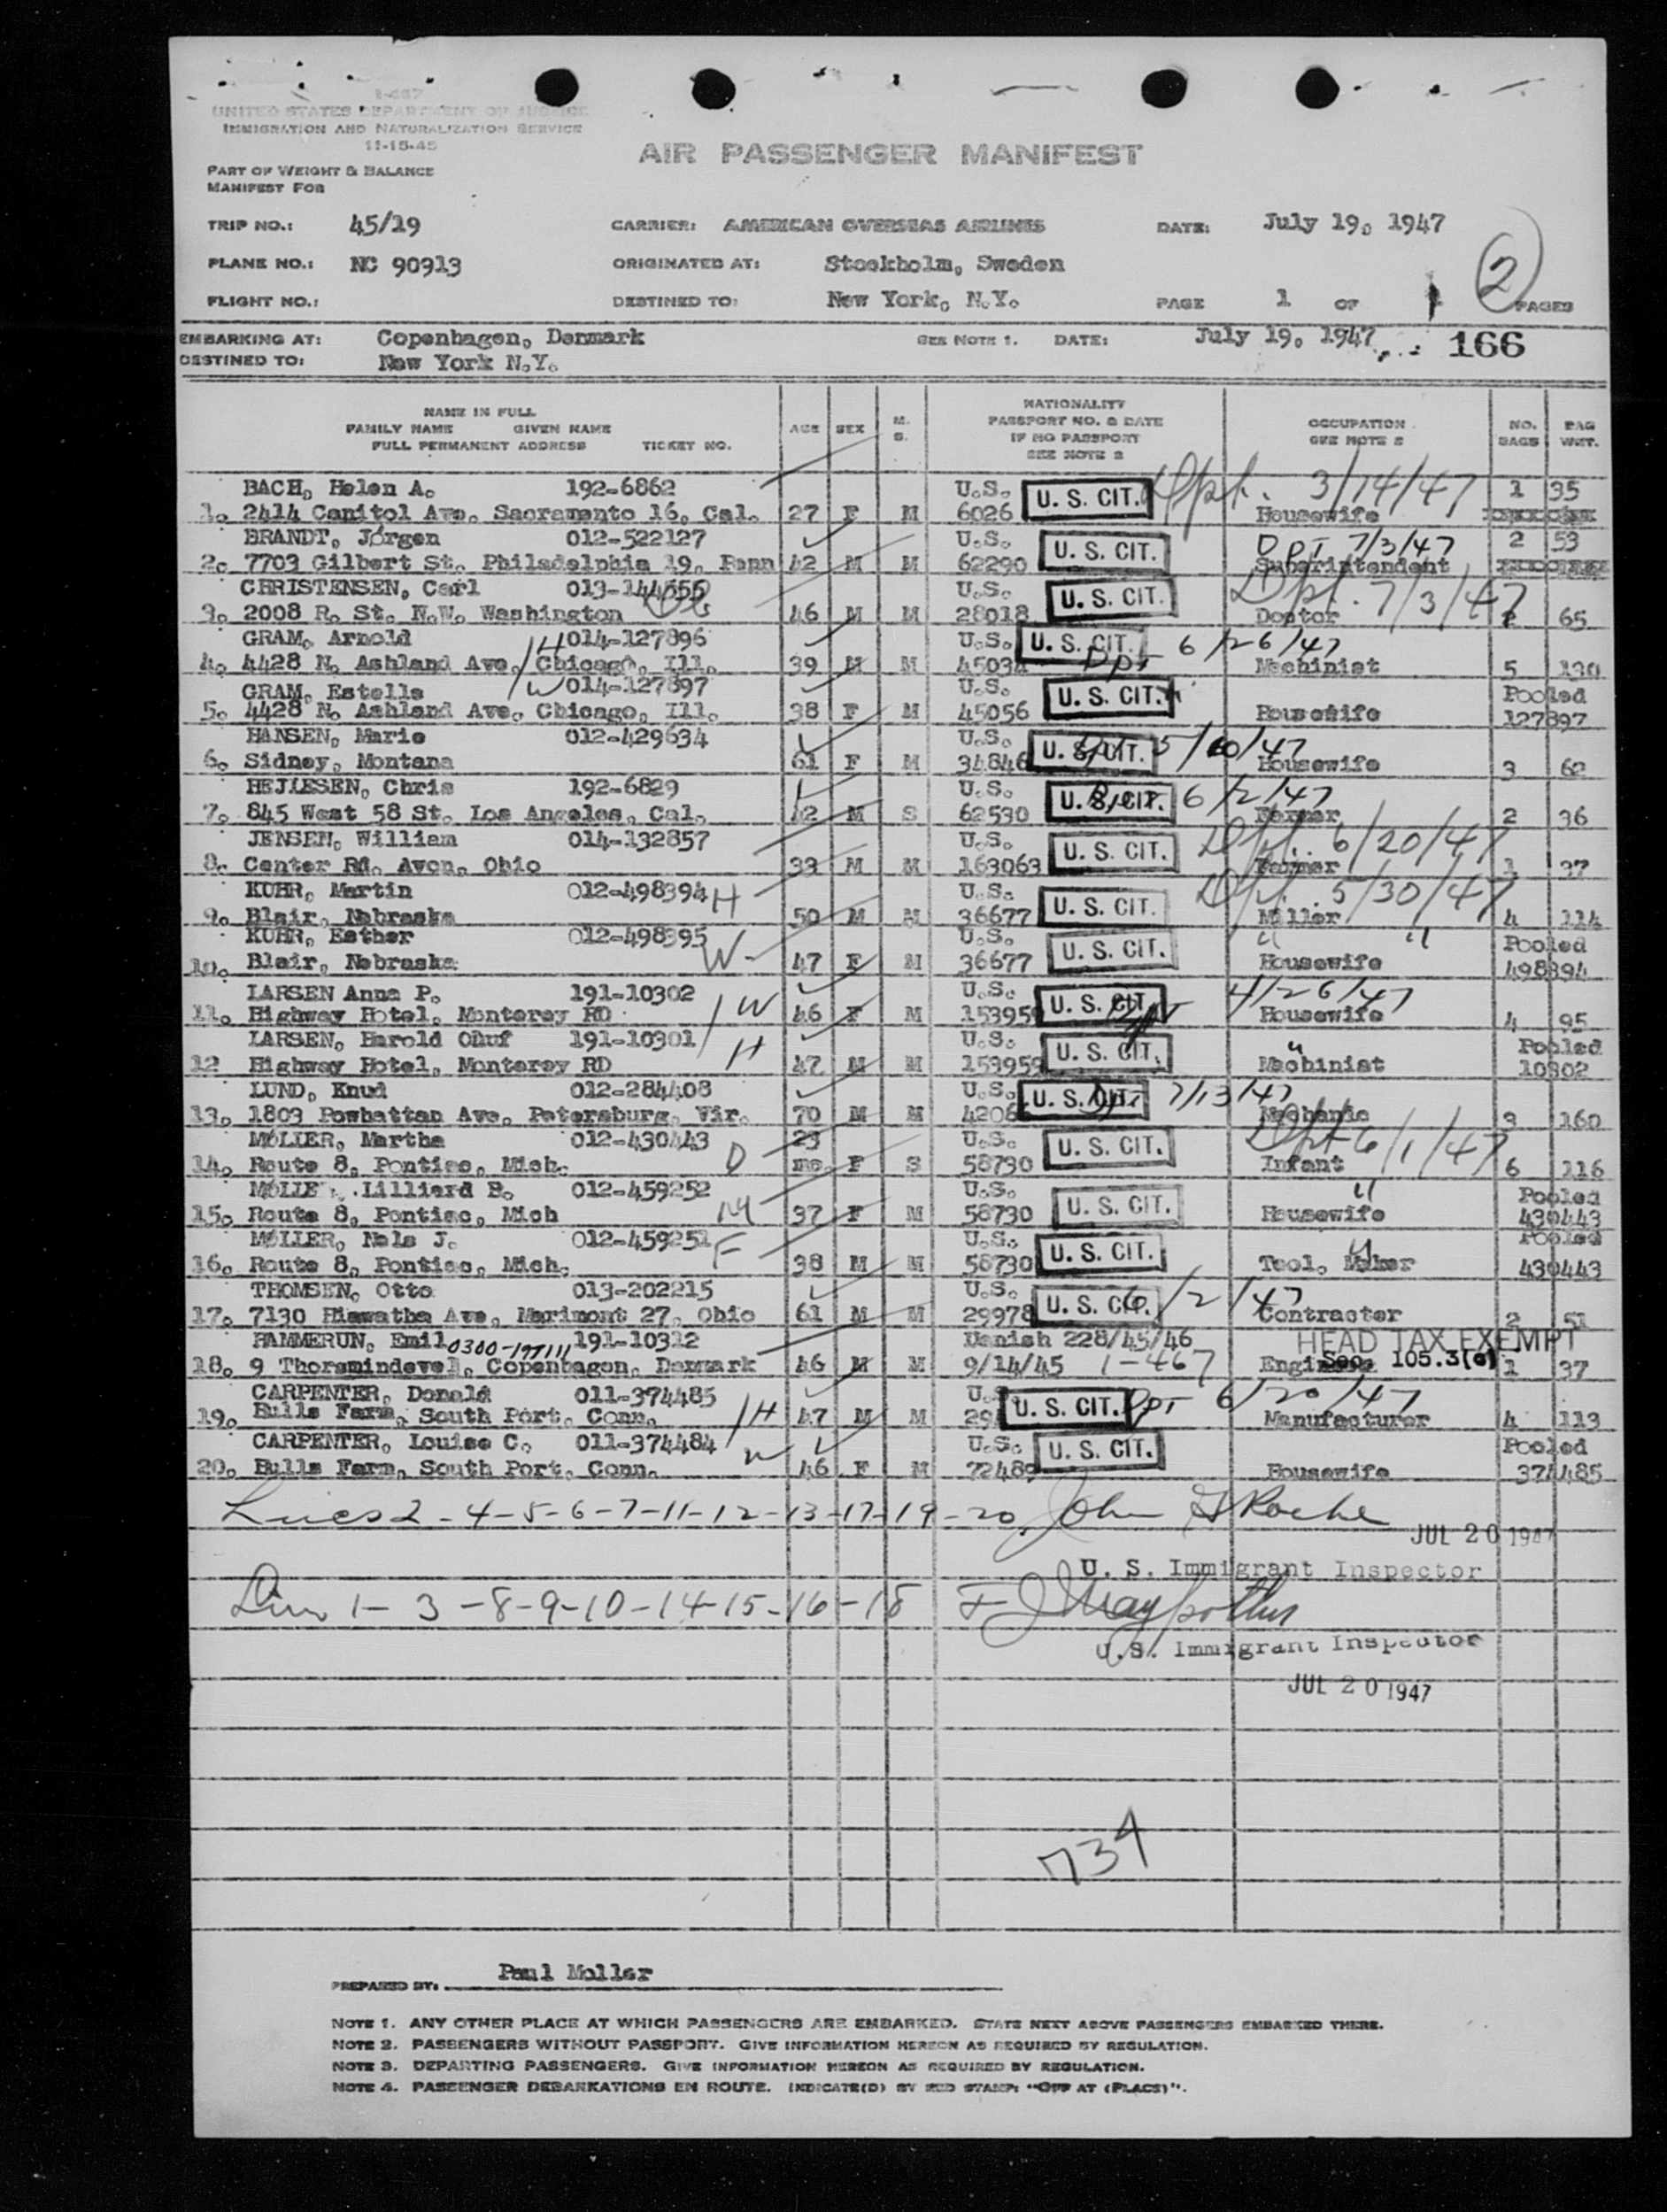 I-467
UNITED STATES DEPARTMENT OF JUSTICE
IMMIGRATION AND NATURALIZATION SERVICE
11-15-45
AIR PASSENGER MANIFEST
PART OF WEIGHT & BALANCE
MANIFEST FOR
TRIP NO.: 45/19 CARRIER: AMERICAN OVERSEAS AIRLINES DATE: July 19, 1947
PLANE NO.: NC 90913 ORIGINATED AT: Stockholm, Sweden 2
FLIGHT NO.: DESTINED TO: New York, N.Y. PAGE 1 OF PAGES
EMBARKING AT: Copenhagen, Denmark SEE NOTE 1. DATE: July 19, 1947 166
DESTINED TO: New York N.Y.
NAME IN FULL
FAMILY NAME GIVEN NAME
FULL PERMANENT ADDRESS TICKET NO.
AGE SEX M. S.
NATIONALITY
PASSPORT NO. & DATE
IF NO PASSPORT
SEE NOTE 2
OCCUPATION
SEE NOTE 2
NO. BAGS BAG WGT.
BACH, Helen A. 192-6862 U.S. U. S. CIT. Dpt. 3/14/47 1 35
1. 2414 Capitol Ave. Sacramento 16, Cal. 27 F M 6026 Housewife
BRANDT, Jørgen 012-522127 U.S. U. S. CIT. DPT 7/3/47 2 53
2. 7703 Gilbert St. Philadelphia 19, Penn 42 M M 62290 Superintendent
CHRISTENSEN, Carl 013-144555 U.S. U. S. CIT. Dpt. 7/3/47
3. 2008 R. St. N.W. Washington DC 46 M M 28018 Doctor 2 65
GRAM, Arnold H 014-127896 U.S. U. S. CIT. DPT 6/26/47
4. 4428 N. Ashland Ave, Chicago, Ill. 39 M M 45034 Machinist 5 130
GRAM, Estelle W 014-127897 U.S. U. S. CIT. " Pooled
5. 4428 N. Ashland Ave. Chicago, Ill. 38 F M 45056 Housewife 127897
HANSEN, Marie 012-429634 U.S. U. S. CIT. DPT 5/10/47
6. Sidney, Montana 61 F M 34846 Housewife 3 62
HEJLESEN, Chris 192-6829 U.S. U. S. CIT. DPT 6/2/47
7. 845 West 58 St. Los Angeles, Cal. 42 M S 62530 Farmer 2 36
JENSEN, William 014-132857 U.S. U. S. CIT. Dpt. 6/20/47
8. Center Rd. Avon, Ohio 33 M M 163063 Farmer 1 37
KUHR, Martin 012-498394 H U.S. U. S. CIT. Dpt. 5/30/47
9. Blair, Nebraska 50 M M 36677 Miller 4 114
KUHR, Esther 012-498395 W U.S. U. S. CIT. " " Pooled
10. Blair, Nebraska 47 F M 36677 Housewife 498394
LARSEN Anna P. 191-10302 W U.S. U. S. CIT. DPT 4/26/47
11. Highway Hotel, Monterey RD 46 F M 153959 Housewife 4 95
LARSEN, Harold Oluf 191-10301 H U.S. U. S. CIT. " Pooled
12 Highway Hotel, Monterey RD 47 M M 153959 Machinist 10302
LUND, Knud 012-284408 U.S. U. S. CIT. DPT 7/13/47
13. 1803 Powhattan Ave. Petersburg, Vir. 70 M M 4206 Mechanic 3 160
MØLLER, Martha 012-430443 D 23 U.S. U. S. CIT. Dpt 6/1/47
14. Route 8, Pontiac, Mich. mo. F S 58730 Infant 6 116
MØLLE Lilliard B. 012-459252 M U.S. U. S. CIT. " Pooled
15. Route 8, Pontiac, Mich 37 F M 58730 Housewife 430443
MØLLER, Nels J. 012-459251 F U.S. U. S. CIT. " Pooled
16. Route 8, Pontiac, Mich. 38 M M 58730 Tool, Maker 430443
THOMSEN, Otto 013-202215 U.S. U. S. CIT. 6/2/47
17. 7130 Hiawatha Ave, Marimont 27, Ohio 61 M M 29978 Contractor 2 51
HAMMERUN, Emil 0300-197111 191-10312 Danish 228/45/46 HEAD TAX EXEMPT
18. 9 Thorsmindevej, Copenhagen, Denmark 46 M M 9/14/45 1-467 Engineer Sec. 105.3(e) 1 37
CARPENTER, Donald 011-374485 H U.S. U. S. CIT. DPT 6/20/47
19. Bulls Farm, South Port, Conn. 47 M M 29 Manufacturer 4 113
CARPENTER, Louise C. 011-374484 W U.S. U. S. CIT. Pooled
20. Bulls Farm, South Port, Conn. 46 F M 72489 Housewife 374485
Lines 2-4-5-6-7-11-12-13-17-19-20 John G Roche
JUL 20 1947
U. S. Immigrant Inspector
Lin 1-3-8-9-10-14-15-16-18
U. S. Immigrant Inspector
JUL 20 1947
734
PREPARED BY: Paul Moller
NOTE 1. ANY OTHER PLACE AT WHICH PASSENGERS ARE EMBARKED. STATE NEXT ABOVE PASSENGERS EMBARKED THERE.
NOTE 2. PASSENGERS WITHOUT PASSPORT. GIVE INFORMATION HEREON AS REQUIRED BY REGULATION.
NOTE 3. DEPARTING PASSENGERS. GIVE INFORMATION HEREON AS REQUIRED BY REGULATION.
NOTE 4. PASSENGER DEBARKATIONS EN ROUTE. INDICATE(D) BY RED STAMP: "OFF AT (PLACE)".